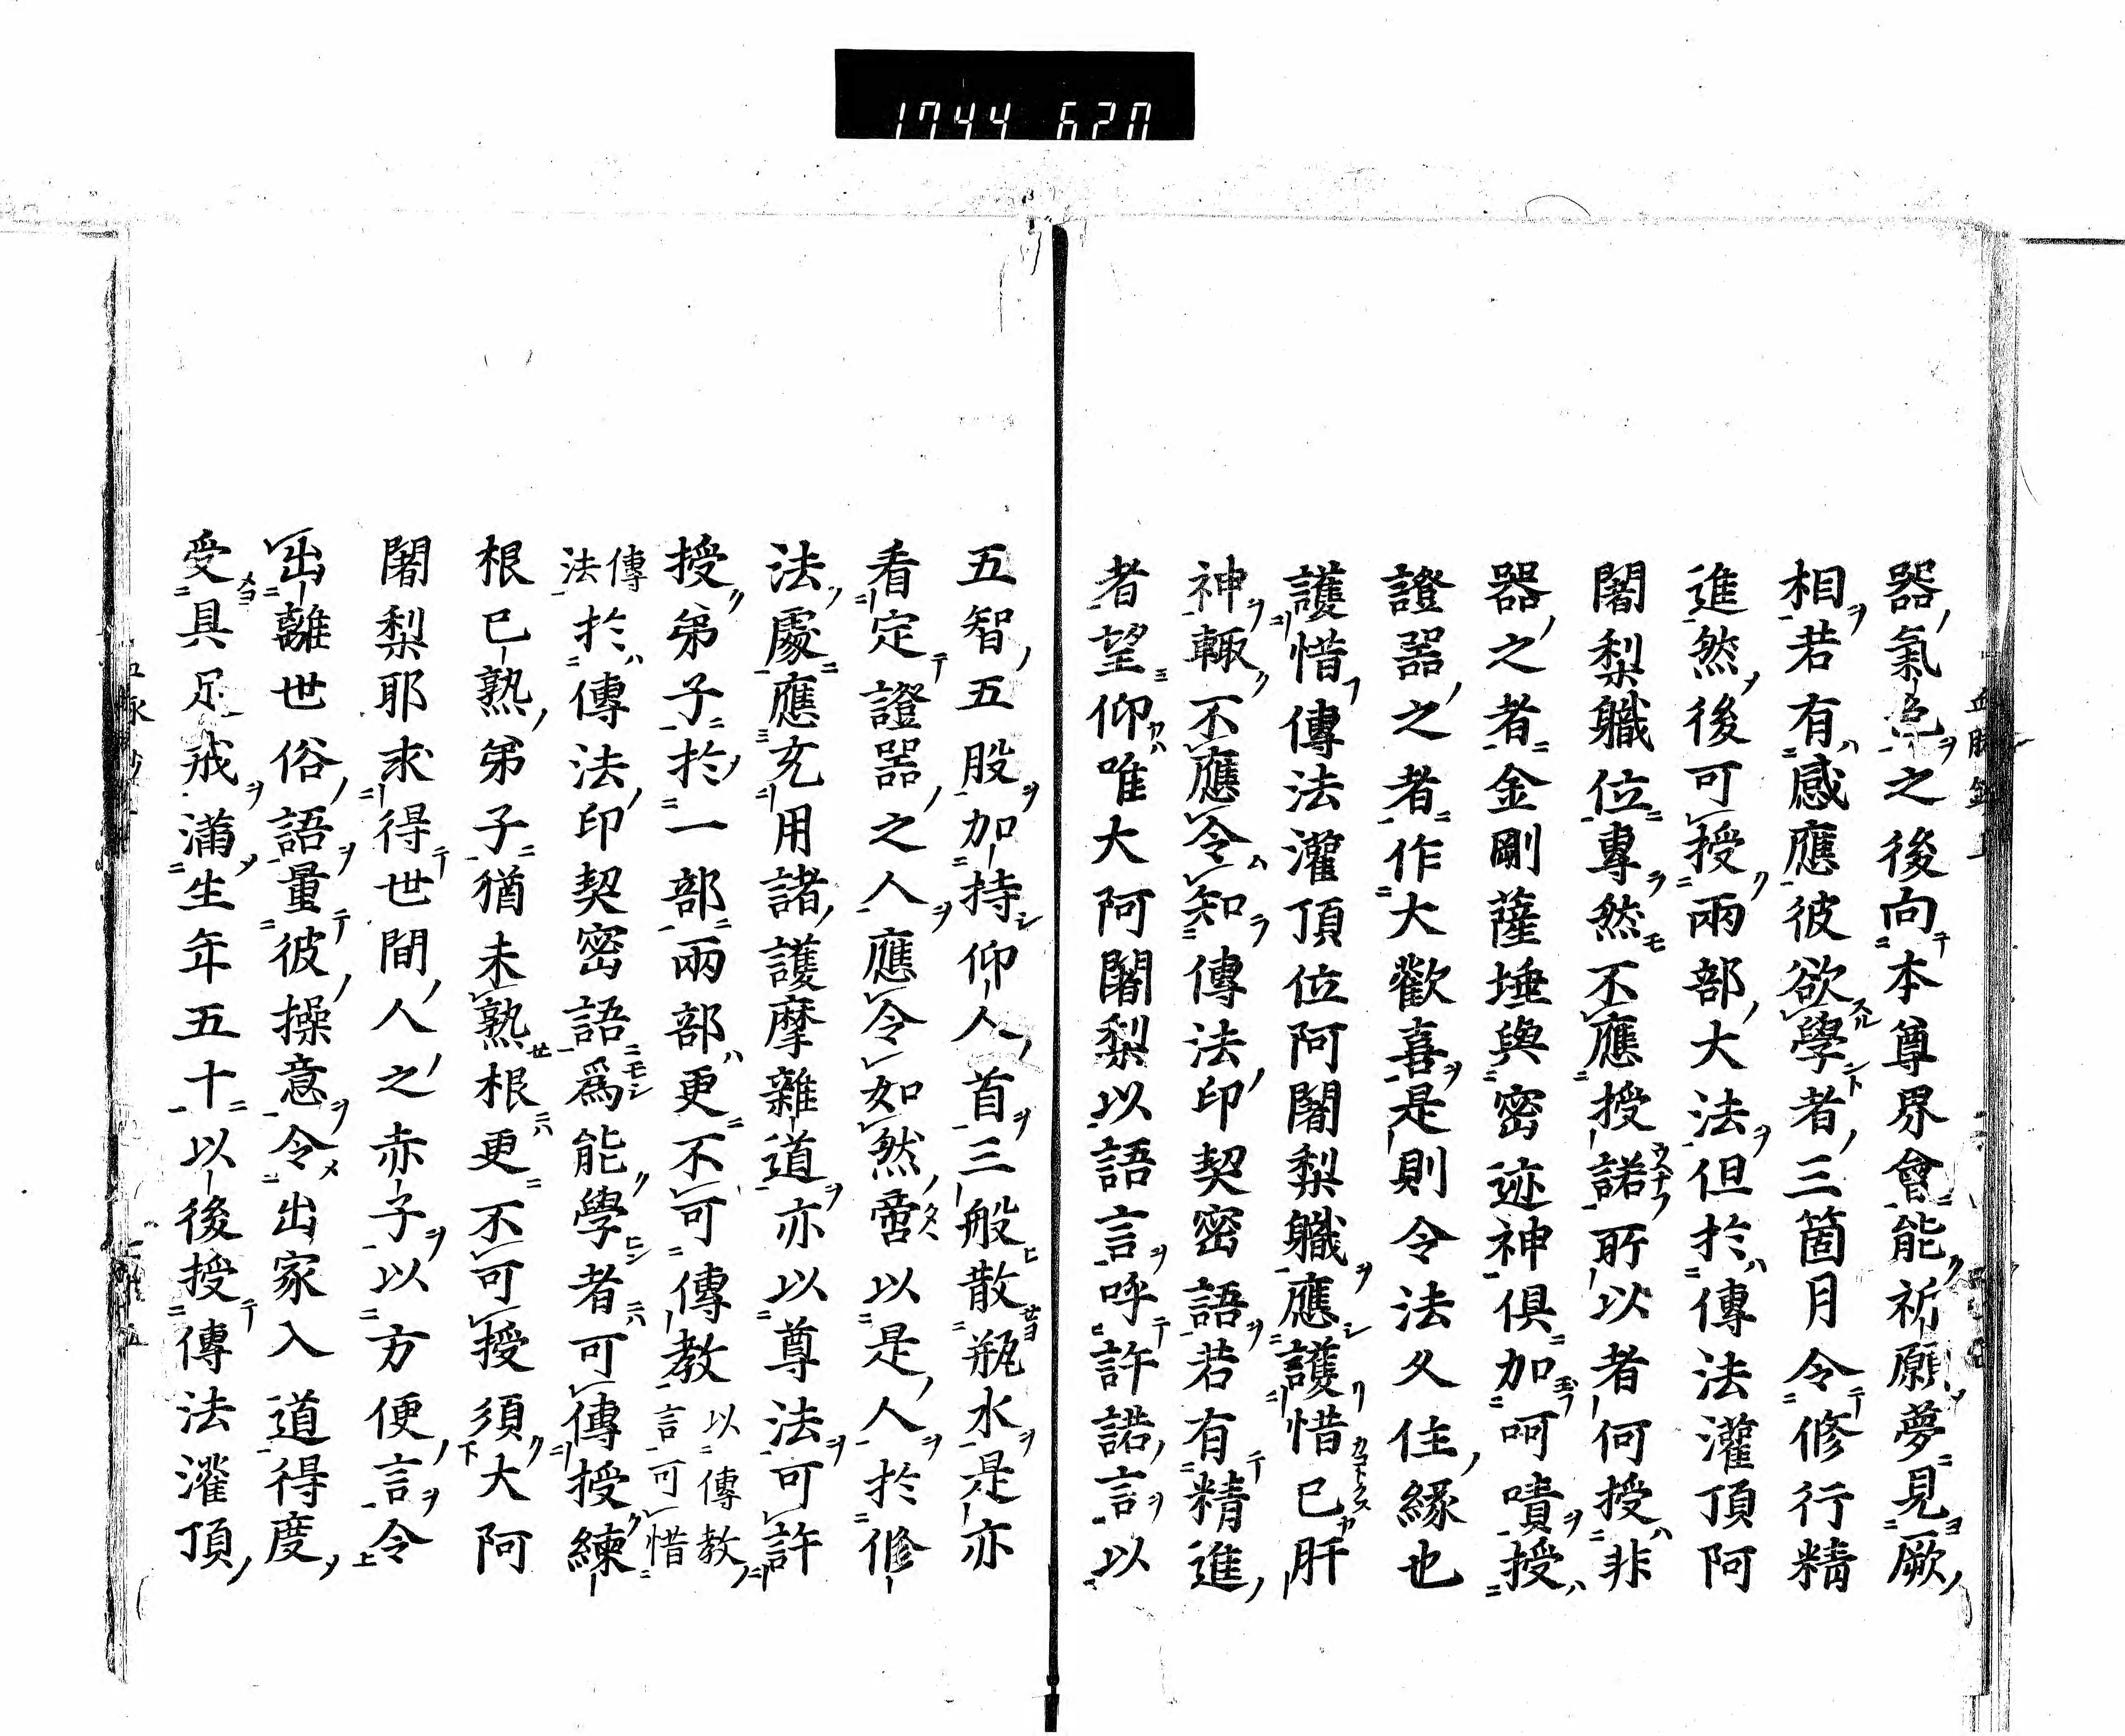 1744 620
器氣色之後向本尊界會能祈願夢見厥
相若有感應彼欲學者三箇月令修行精
進然後可授兩部大法但於傳法灌頂阿
闍梨職位專然不應授諾所以者何授非
器之者金剛薩埵與密迹神俱加呵嘖授
證器之者作大歡喜是則令法久住緣也
護惜傳法灌頂位阿闍梨職應護惜已肝
神輙不應令知傳法印契密語若有精進
者望仰唯大阿闍梨以語言呼許諾言以
五智五股加持仰人首三般散瓶水是亦
看定證器之人應令如然啻以是人於修
法處應充用諸護摩雜道亦以尊法可許
授弟子於一部兩部更不可傳教以傳教言可惜
傳法於傳法印契密語爲能學者可傳授練
根已熟弟子猶未熟根更不可授須大阿
闍梨耶求得世間人之赤子以方便言令
出離世俗語量彼操意令出家入道得度
受具足戒滿生年五十以後授傳法灌頂